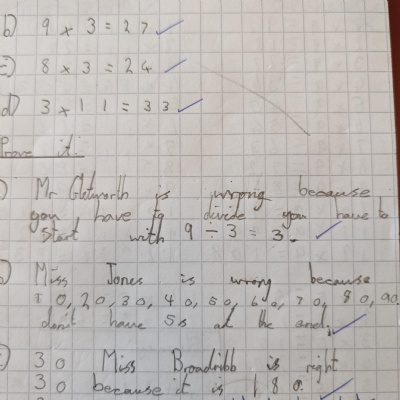 b) 9 x 3 = 27
c) 8 x 3 = 24
d) 3 x 11 = 33
Prove it
Mr Gletworth is wrong because
you have to divide you have to
start with 9 ÷ 3 = 3.
Miss Jones is wrong because
10, 20, 30, 40, 50, 60, 70, 80, 90
don't have 5s at the end.
30 Miss Broadribb is right
30 because it is 180.